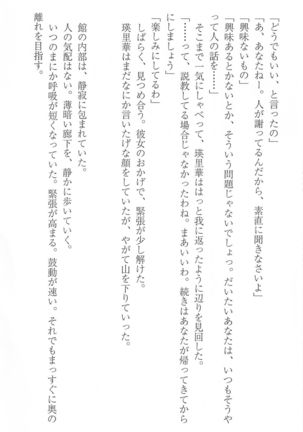 「どうでもいい、と言ったの」
「あ、あなたねー。人が謝ってるんだから、素直に聞きなさいよ」
「興味ないもの」
「興味あるとかないとか、そういう問題じゃないでしょっ。だいたいあなたは、いつもそうや
って人の話を……」
そこまで一気にしゃべって、瑛里華ははっと我に返ったように辺りを見回した。
「……って、説教してる場合じゃなかったわね。まあいいわ。続きはあなたが帰ってきてから
にしましょう」
「楽しみにしてるわ」
しばらく、見つめ合う。彼女のおかげで、緊張が少し解けた。
瑛里華はまだなにか言いたげな顔をしていたが、やがて山を下りていった。
館の内部は、静寂に包まれていた。
人の気配はない。薄暗い廊下を、静かに歩いていく。
いつのまにか呼吸が短くなっていた。緊張が高まる。鼓動が速い。それでもまっすぐに奥の
離れを目指す。